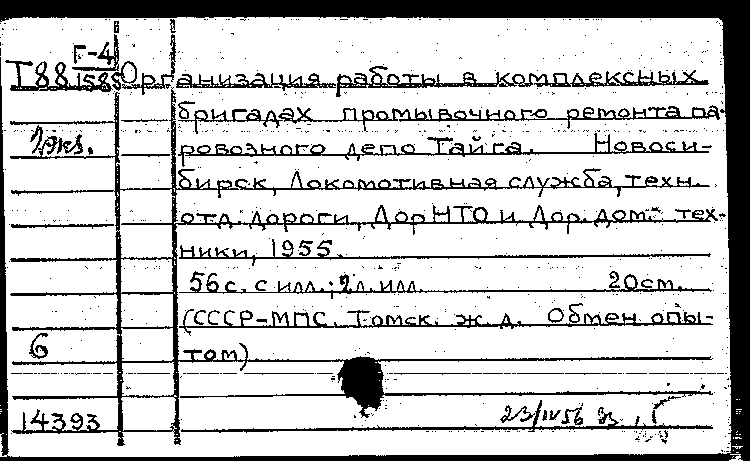 Г-4
Т88 1585 Организация работы в комплексных
бригадах промывочного ремонта па-
2экз. ровозного депо Тайга. Новоси-
бирск, Локомотивная служба, техн.
отд. дороги, ДорНТО и Дор. дом. тех-
ники, 1955.
56с. с илл.; 2л. илл. 20см.
(СССР-МПС. Томск. ж. д. Обмен опы-
6 том)
14393 23/IV 56